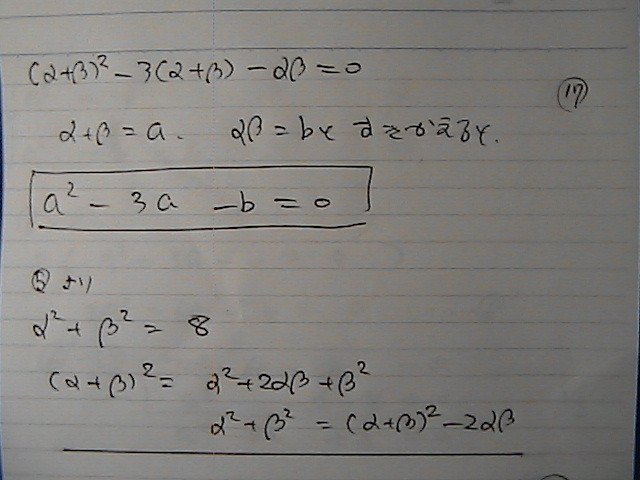 (α+β)² − 3(α+β) − αβ = 0
⑰
α+β = a. αβ = bとおきかえると.
a² − 3a − b = 0
⑤より
α² + β² = 8
(α+β)² = α²+2αβ+β²
α²+β² = (α+β)²−2αβ